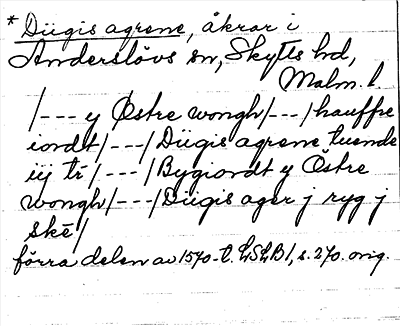 * Diigis agrene, åkrar i
Anderslövs sn, Skytts hd,
Malm. l.
/--- y Østre wongh/---/hauffre
iordt/---/Diigis agrene tuende
iij tr̄/---/Bygiordt y Östre
wongh/---/Diigis ager j ryg j
skē/
förra delen av 1570-t. LSLB1, s. 270. orig.